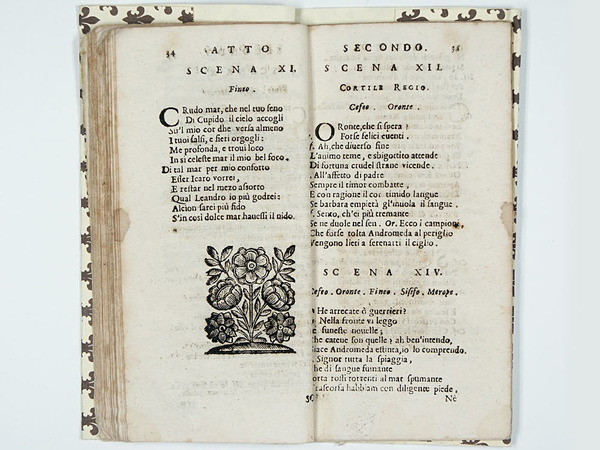 34 ATTO
SCENA XI.
Fineo.
CRudo mar, che nel tuo seno
Di Cupido il cielo accogli
Su'l mio cor dhe versa almeno
I tuoi salsi, e fieri orgogli:
Me profonda, e troui loco
In si celeste mar il mio bel foco.
Di tal mar per mio conforto
Esser Icaro vorrei,
E restar nel mezo assorto
Qual Leandro io più godrei:
Alcion sarei più fido
S'in così dolce mar hauessi il nido.
SECONDO.
SCENA XII.
CORTILE REGIO.
Cefeo. Oronte.
ORonte, che si spera?
Forse felici euenti.
Ah, che diuerso fine
L'animo teme, e sbigottito attende
Di fortuna crudel strane vicende.
All'affetto di padre
Sempre il timor combatte,
E con ragione il cor timido langue
Se barbara empietà gl'inuola il sangue.
Sento, ch'ei più tremante
Se ne duole nel sen. Or. Ecco i campioni,
Che forse tolta Andromeda al periglio
Vengono lieti a serenarti il ciglio.
SCENA XIV.
Cefeo. Oronte. Fineo. Sisifo. Merope.
He arrecate ò guerrieri?
Nella fronte vi leggo
funeste nouelle;
Che catene son quelle? ah ben'intendo,
Giace Andromeda estinta, io lo comprendo.
Signor tutta la spiaggia,
Che di sangue fumante
rossi torrenti al mar spumante
Trascorsa habbiam con diligente piede,
Nè